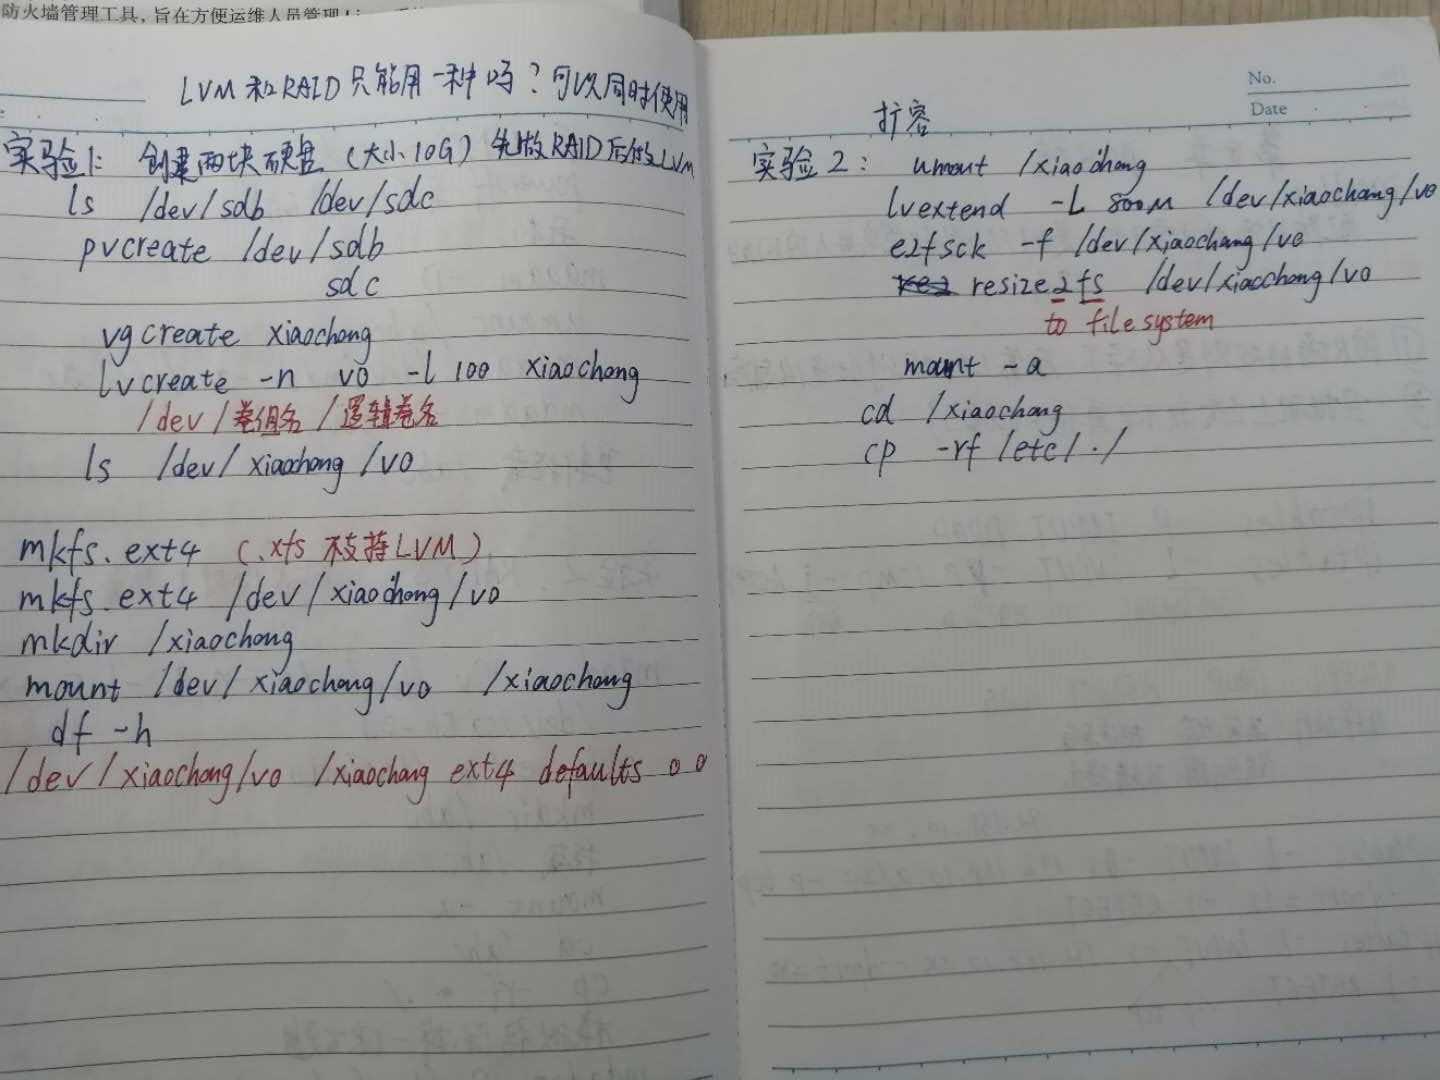 防火墙管理工具，旨在方便运维人员管理
LVM 和 RAID 只能用一种吗？可以同时使用
实验1: 创建两块硬盘（大小10G）先做RAID后做LVM
ls /dev/sdb /dev/sdc
pvcreate /dev/sdb
sdc
vgcreate xiaochong
lvcreate -n vo -l 100 xiaochong
/dev/卷组名/逻辑卷名
ls /dev/xiaochong/vo
mkfs.ext4 (.xfs 不支持LVM)
mkfs.ext4 /dev/xiaochong/vo
mkdir /xiaochong
mount /dev/xiaochong/vo /xiaochong
df -h
/dev/xiaochong/vo /xiaochong ext4 defaults 0 0
No.
Date
扩容
实验2: umount /xiaochong
lvextend -L 800M /dev/xiaochong/vo
e2fsck -f /dev/xiaochong/vo
resize2fs /dev/xiaochong/vo
to file system
mount -a
cd /xiaochong
cp -rf /etc/ ./